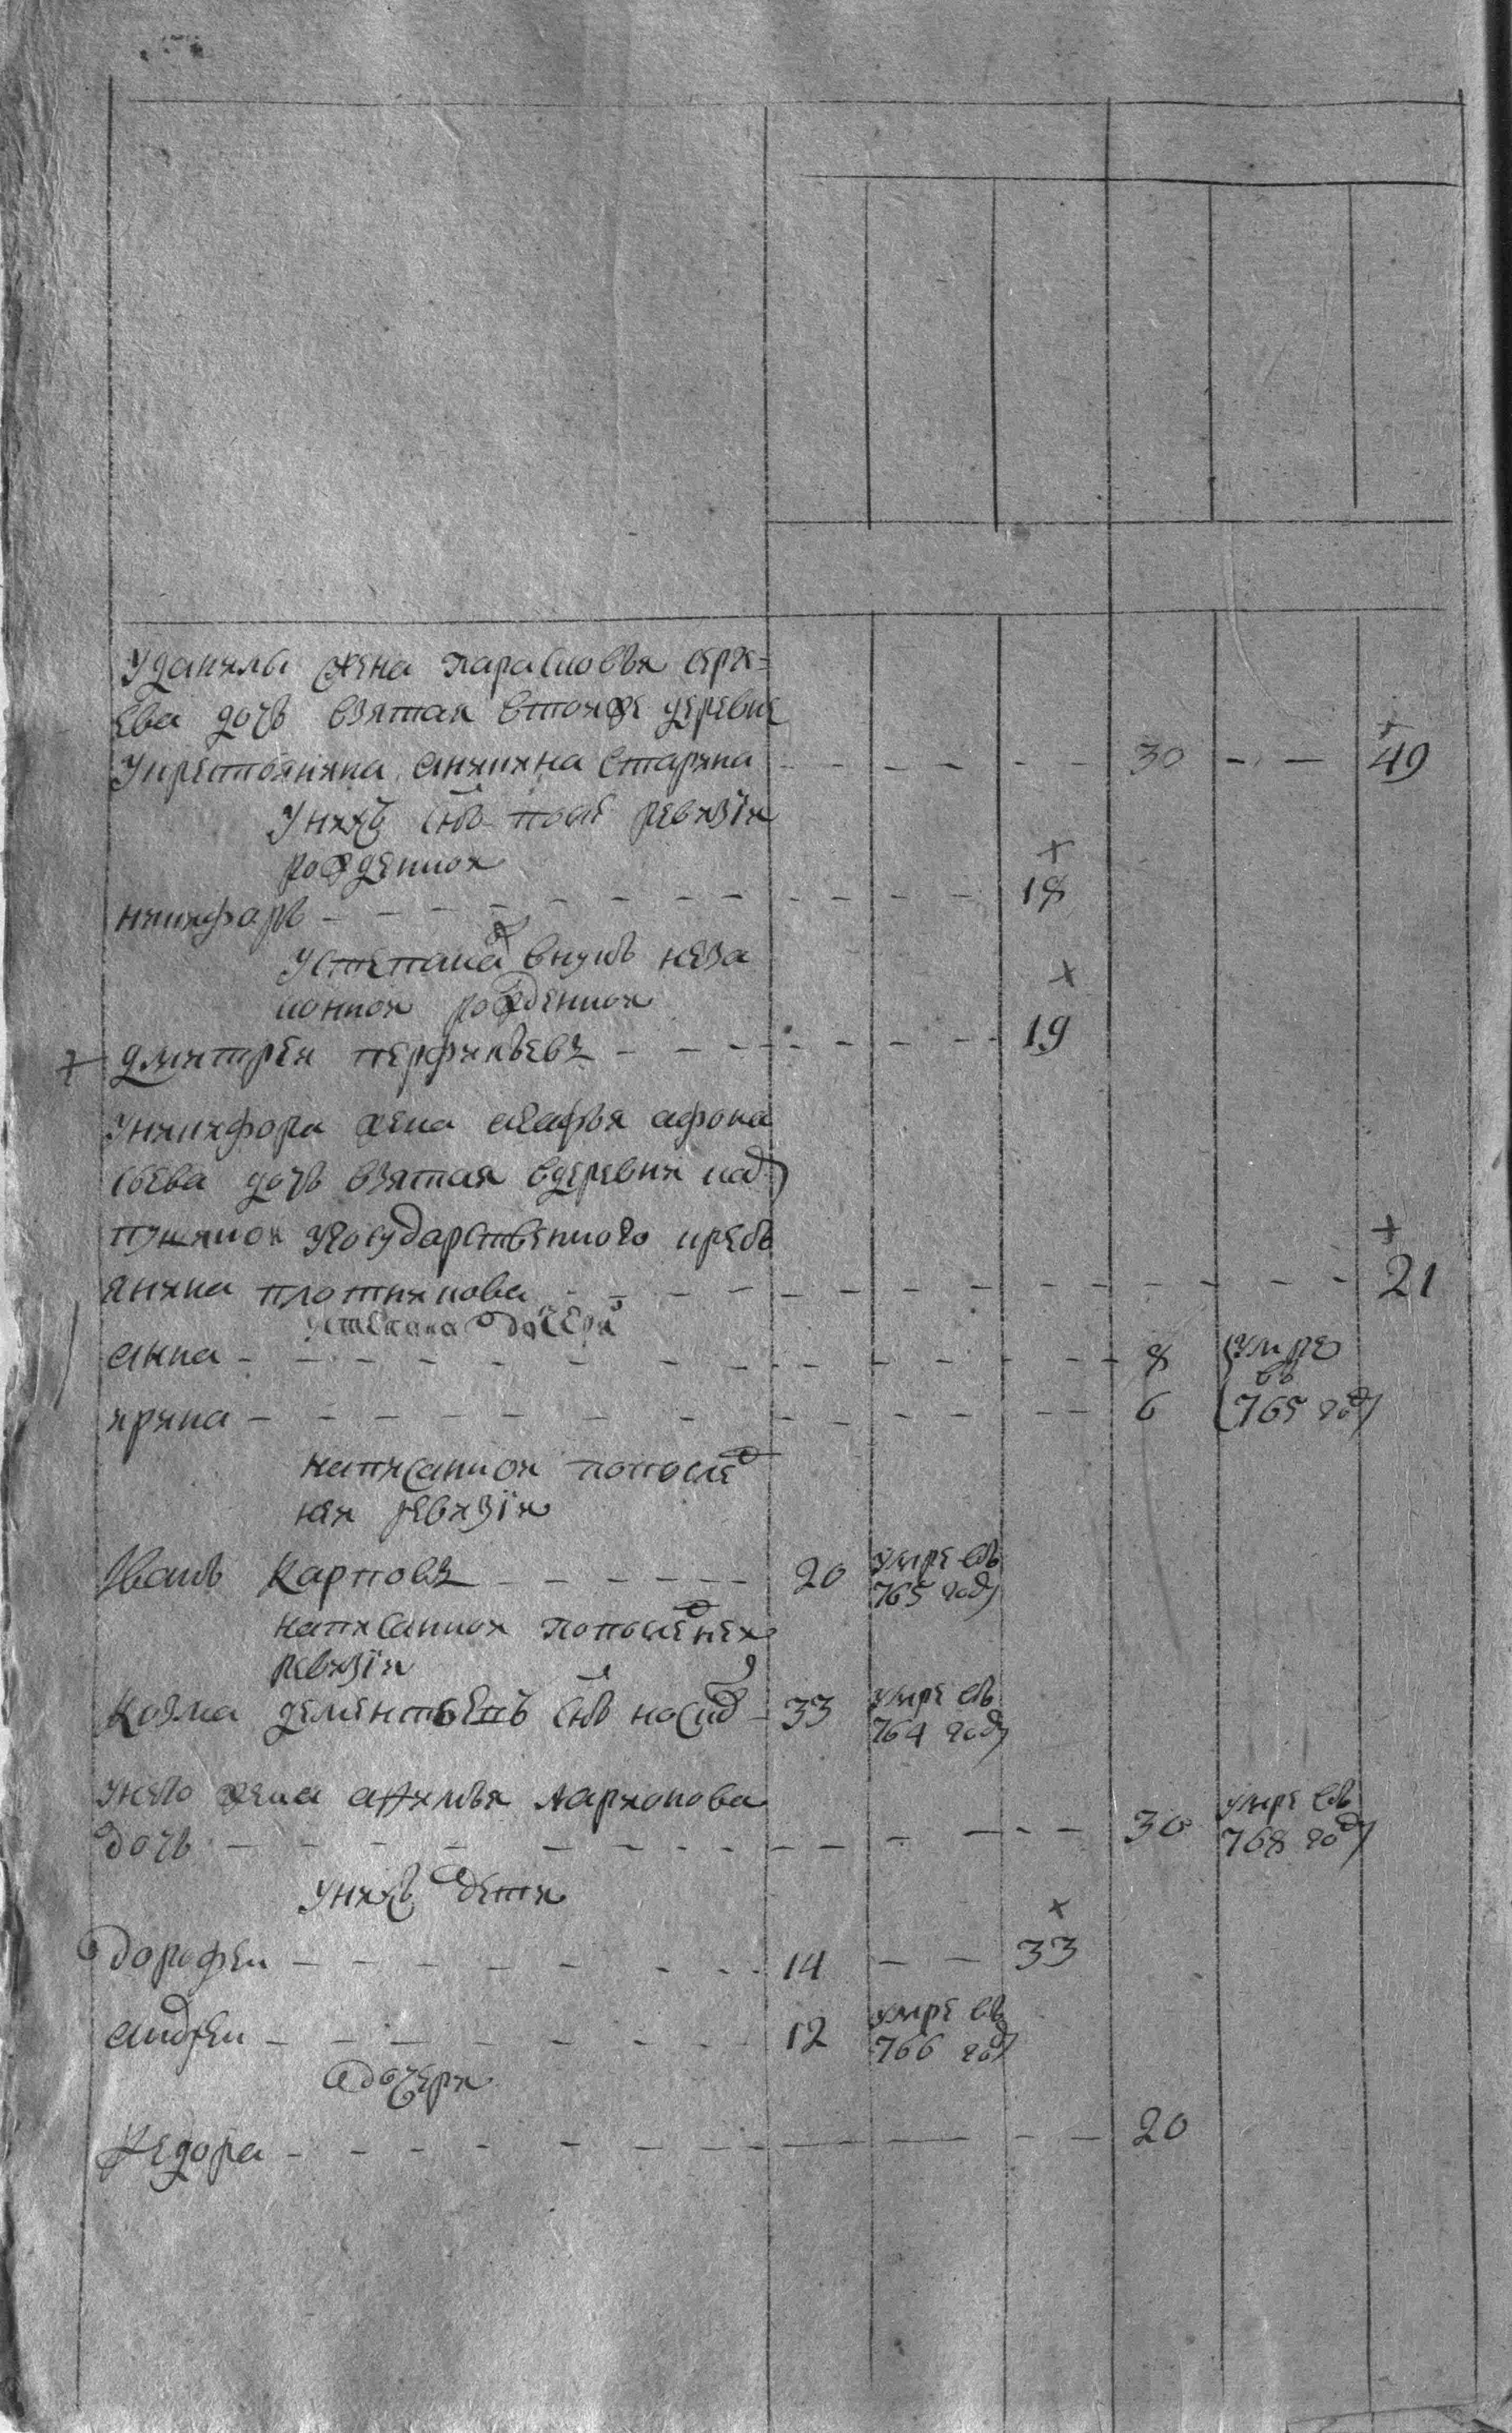 уданилы жена парасковья серге=
ева дочь взятая втойже деревне
укрестьянина аникина старика - - - 30 - - 49
унихъ снъ после ревизiи
рожденнои
никифоръ - - - 18
устепана внукъ неза
коннои рожденнои
дмитреи перфильевъ - - - 19
уникифора жена агафья афона
сьева дочь взятая вдеревни над
угосударственного кресть
янина плотникова - - - 21
устепана дочери
анна - - - 8 умре
въ
ирина - - - 6 765 году
написаннои попослед
неи ревизiи
Иванъ Карповъ - - - 20 умре въ
765 году
написаннои попоследнеи
ревизiи
Козма дементьевъ снъ 33 умре въ
764 году
унего жена афимья ларионова
дочь - - - 30 умре въ
768 году
унихъ дети
дорофеи - - - 14 - - 33
андреи - - - 12 умре въ
766 году
дочери
Федора - - - 20